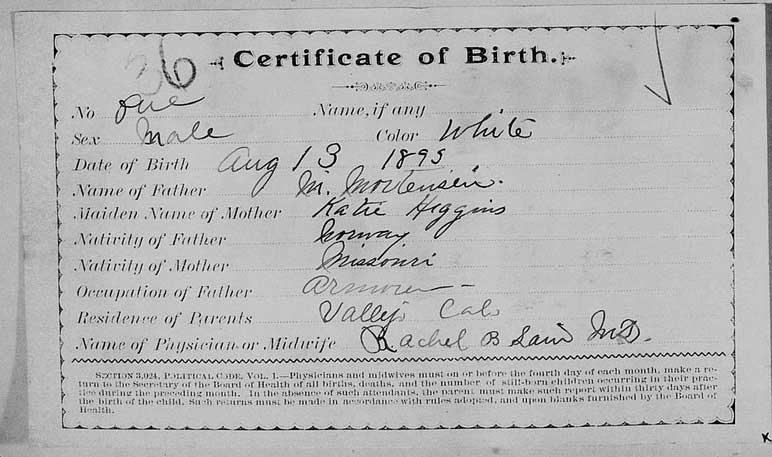 36
Certificate of Birth.
No One Name, if any
Sex Male Color White
Date of Birth Aug 13 1895
Name of Father M. Mortensen.
Maiden Name of Mother Katie Higgins
Nativity of Father Norway
Nativity of Mother Missouri
Occupation of Father Armorer
Residence of Parents Vallejo Cal
Name of Physician or Midwife Rachel B M.D.
SECTION 3,024, POLITICAL CODE, VOL. 1.—Physicians and midwives must on or before the fourth day of each month, make a re-
turn to the Secretary of the Board of Health of all births, deaths, and the number of still-born children occurring in their prac-
tice during the preceding month. In the absence of such attendants, the parent must make such report within thirty days after
the birth of the child. Such returns must be made in accordance with rules adopted, and upon blanks furnished by the Board of
Health.
K